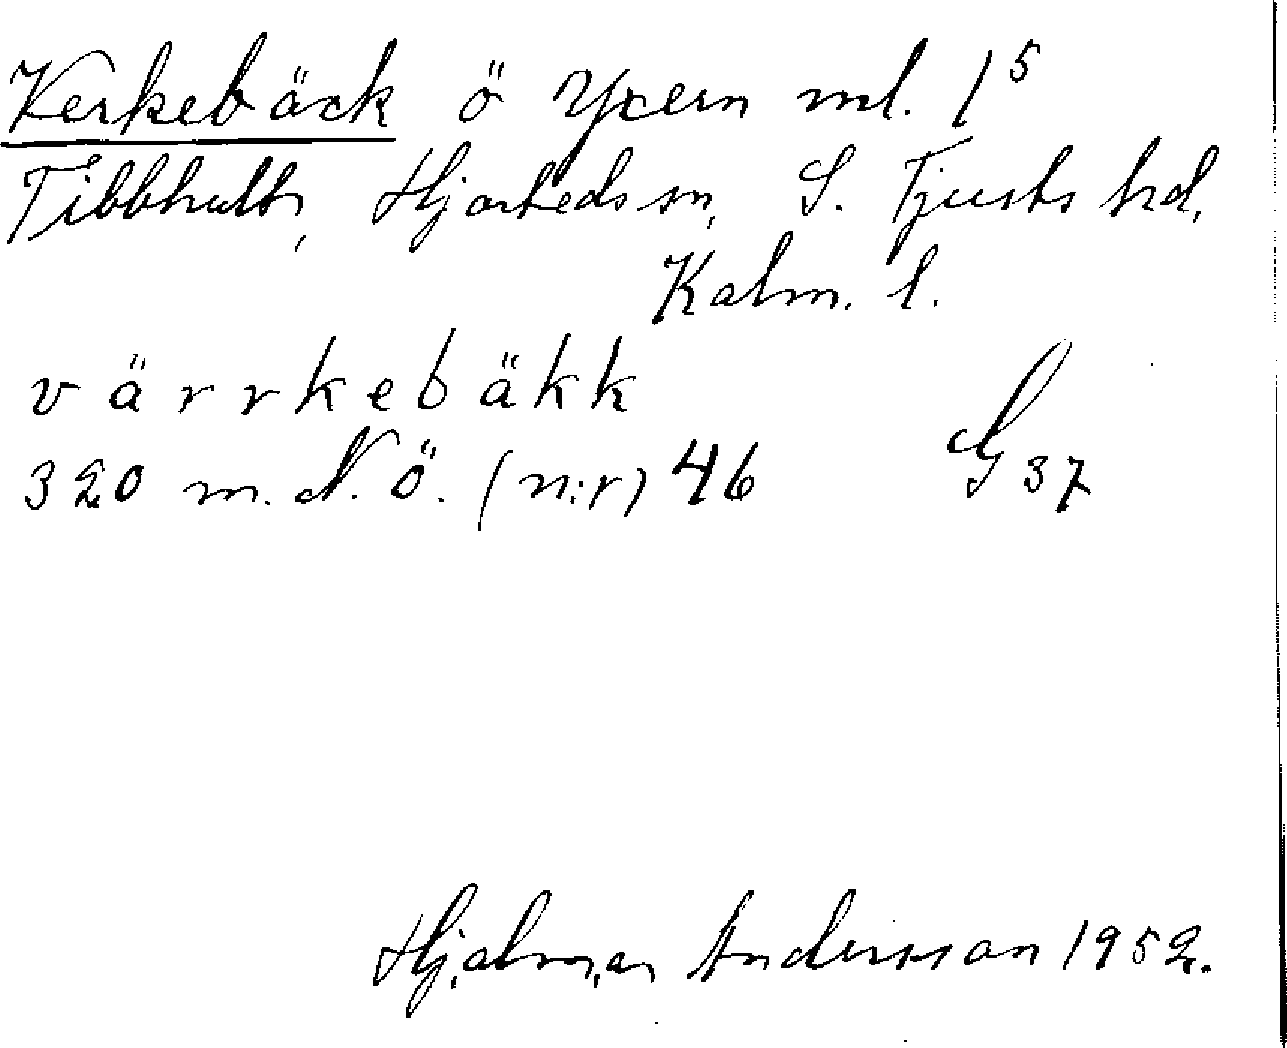 Verkebäck ö Yxern ml. 1⁵
Tibbhult, Hjorteds sn, S. Tjusts hd,
Kalm. l.
värrkebäkk
320 m. N. Ö. (n:r) 46 G 37
Hjalmar Andersson 1952.